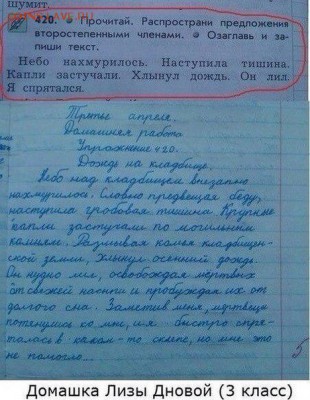 шумит.
420. Прочитай. Распространи предложения
второстепенными членами. Озаглавь и за-
пиши текст.
Небо нахмурилось. Наступила тишина.
Капли застучали. Хлынул дождь. Он лил.
Я спрятался.
Третье апреля.
Домашняя работа
Упражнение 420.
Дождь на кладбище.
Небо над кладбищем внезапно
нахмурилось. Словно предвещая беду,
наступила гробовая тишина. Крупные
капли застучали по могильным
камням. Размывая комья кладбищен-
ской земли, хлынул осенний дождь.
Он нудно лил, освобождая мёртвых
от свежей насыпи и пробуждая их от
долгого сна. Заметив меня, мертвецы
потянулись ко мне, и я быстро спря-
талась в каком-то склепе, но мне это
не помогло...
5
Домашка Лизы Дновой (3 класс)